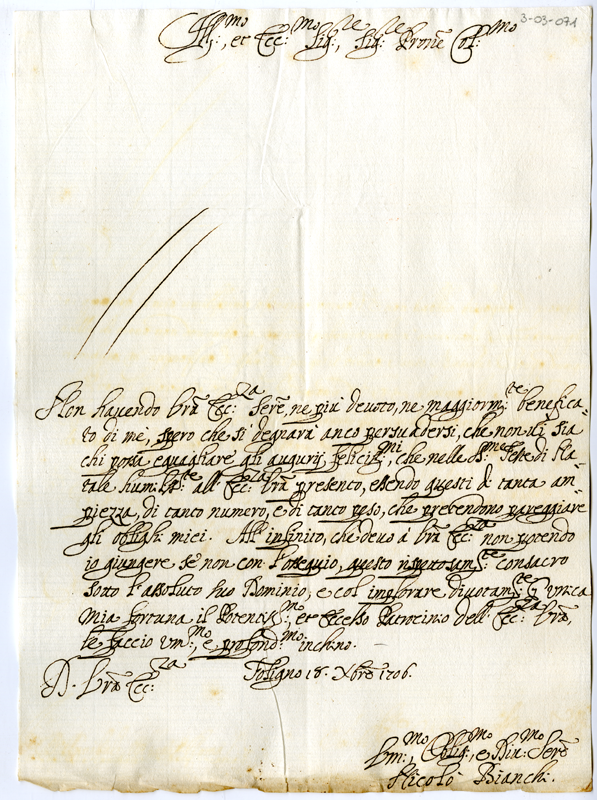 3-03-071
Ill:mo, et Ecc:mo Sig:re, Sig:re Prone Col:mo
Non havendo Vrã Ecc:za Serẽ, ne più devoto, ne maggiorm:te benefica-
to di me, spero che si degnarà anco persuadersi, che non vi sia
chi possa eguagliare gli augurij felicis:mi, che nelle S:me Feste di Na-
tale hum:te all'Ecc:za Vrã presento, essendo questi di tanta am-
piezza, di tanto numero, e di tanto peso, che pretendono pareggiare
gli oblighi miei. All'infinito, che devo à Vrã Ecc:za non potendo
io giungere se non con l'ossequio, questo rispettosam:te consacro
sotto l'assoluto suo Dominio, e col implorare divotam:te p unica
mia fortuna il Potentis:mo, et Eccelso Patrocinio dell'Ecc:za Vrã,
le faccio um:mo, e profond:mo inchino.
D. Vrã Ecc:za Foligno 18. Xbrẽ 1706.
Um:mo, Oblig:mo, e Div:mo Serẽ
Nicolò Bianchi.